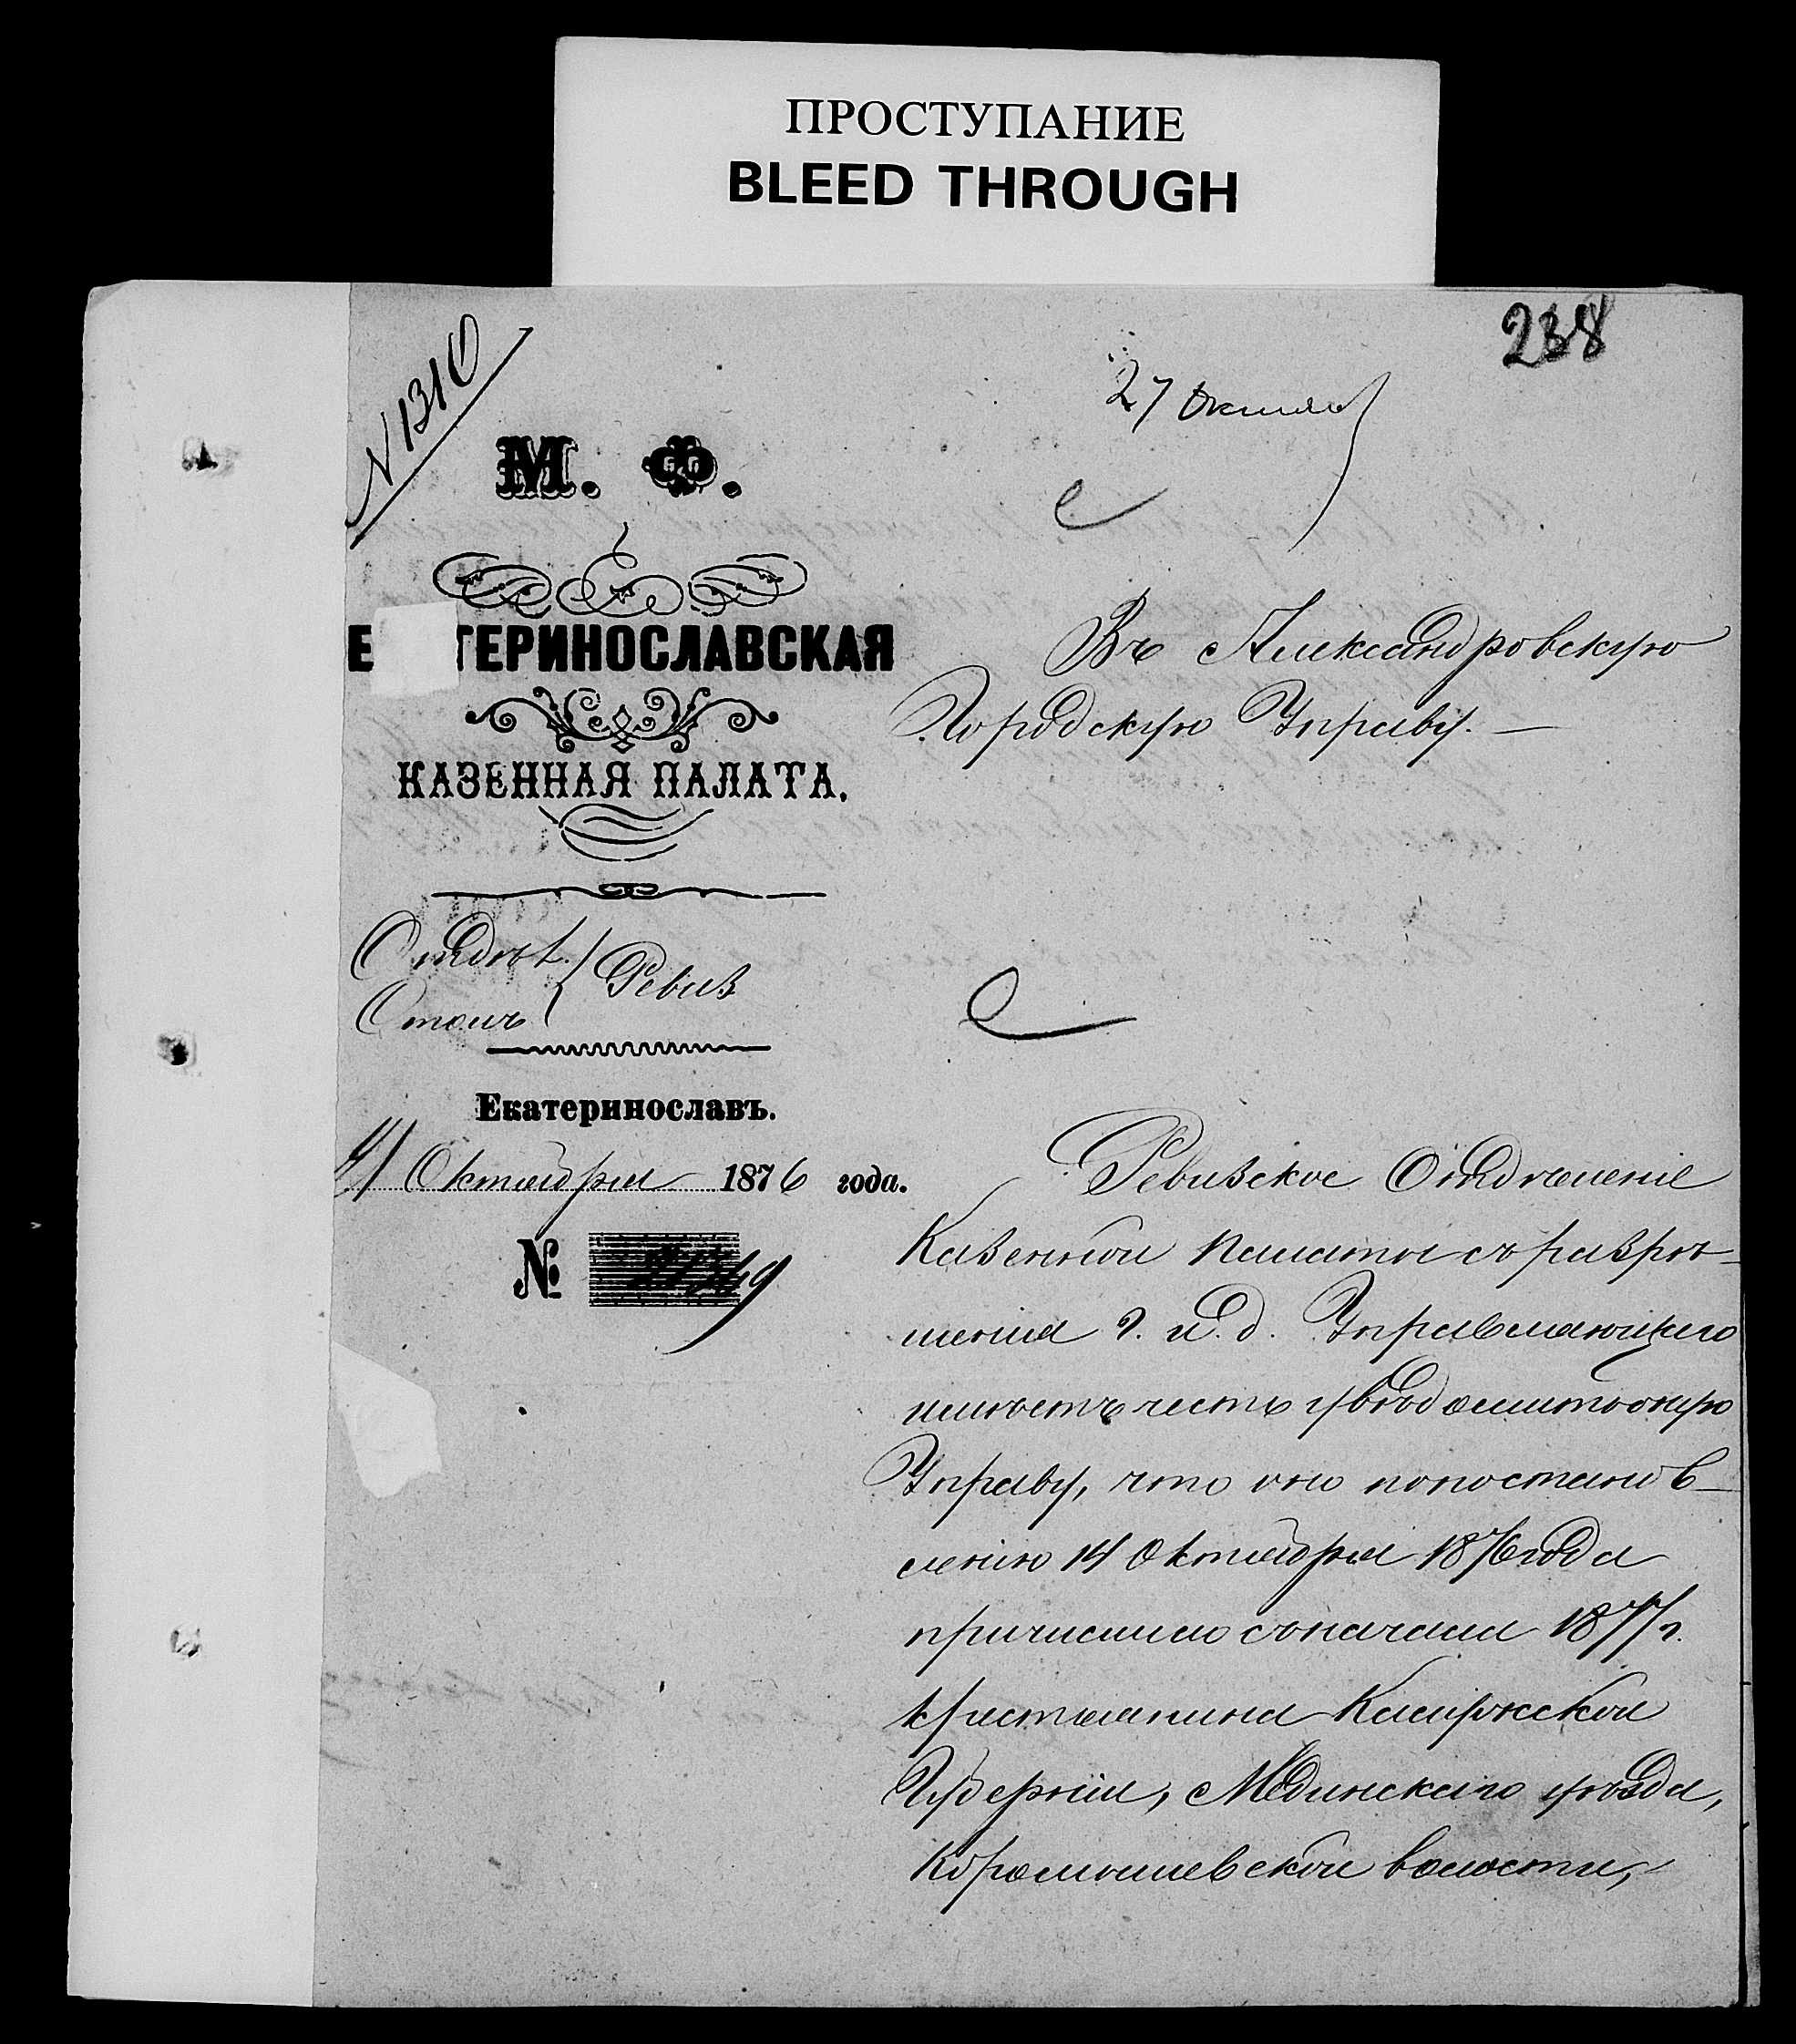 ПРОСТУПАНИЕ
BLEED THROUGH
238
N 1310
27 Октября
М. Ф.
Е ТЕРИНОСЛАВСКАЯ
КАЗЕННАЯ ПАЛАТА.
Отдѣл.
Столъ
Ревиз
Екатеринославъ.
Октября 1876 года.
№
Въ Александровскую
Городскую Управу. —
Ревизское Отдѣленіе
Казенной Палаты съ разрѣ-
шенія г. и. д. Управляющаго
имѣетъ честь увѣдомить оную
Управу, что оно по постанов-
ленію 14 Октября 1876 года
причислило съ начала 1877 г.
крестьянина Калужской
Губерніи, Мединскаго уѣзда,
волости,